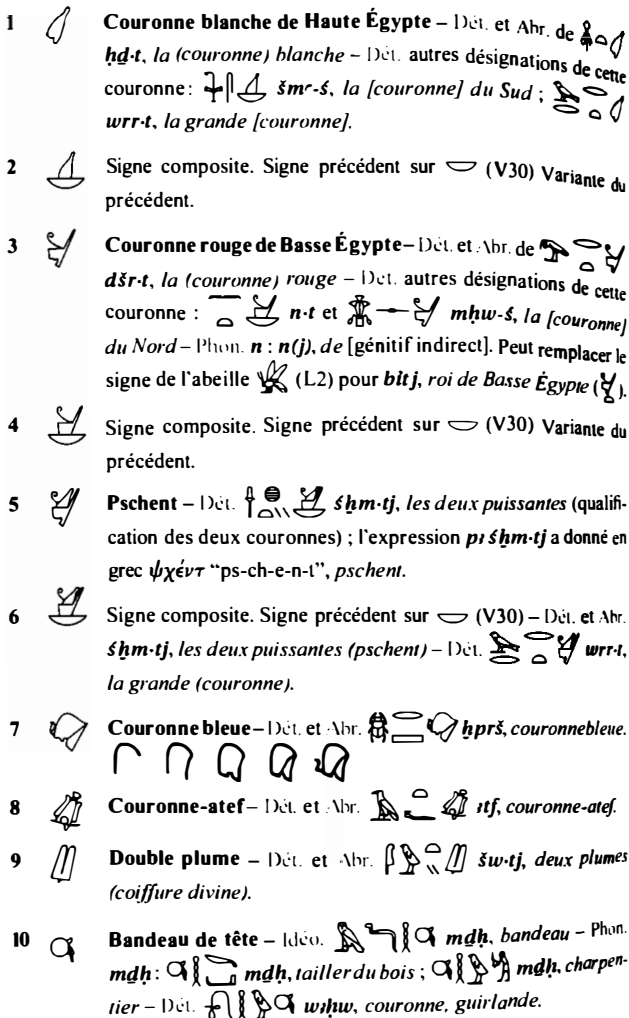 1 Couronne blanche de Haute Égypte – Dét. et Abr. de
ḥḏ·t, la (couronne) blanche – Dét. autres désignations de cette
couronne : šmꜥ-ś, la [couronne] du Sud ;
wrr·t, la grande [couronne].
2 Signe composite. Signe précédent sur (V30) Variante du
précédent.
3 Couronne rouge de Basse Égypte – Dét. et Abr. de
dšr·t, la (couronne) rouge – Dét. autres désignations de cette
couronne : n·t et mḥw-ś, la [couronne]
du Nord – Phon. n : n(j), de [génitif indirect]. Peut remplacer le
signe de l'abeille (L2) pour bỉtj, roi de Basse Égypte ( ).
4 Signe composite. Signe précédent sur (V30) Variante du
précédent.
5 Pschent – Dét. śḫm·tj, les deux puissantes (qualifi-
cation des deux couronnes) ; l'expression pꜣ śḫm·tj a donné en
grec ψχέντ “ps-ch-e-n-t”, pschent.
6 Signe composite. Signe précédent sur (V30) – Dét. et Abr.
śḫm·tj, les deux puissantes (pschent) – Dét. wrr·t,
la grande (couronne).
7 Couronne bleue – Dét. et Abr. ḫprš, couronne bleue.
8 Couronne-atef – Dét. et Abr. ꜣtf, couronne-atef.
9 Double plume – Dét. et Abr. šw·tj, deux plumes
(coiffure divine).
10 Bandeau de tête – Idéo. mḏḥ, bandeau – Phon.
mḏḥ : mḏḥ, tailler du bois ; mḏḥ, charpen-
tier – Dét. wꜣḥw, couronne, guirlande.